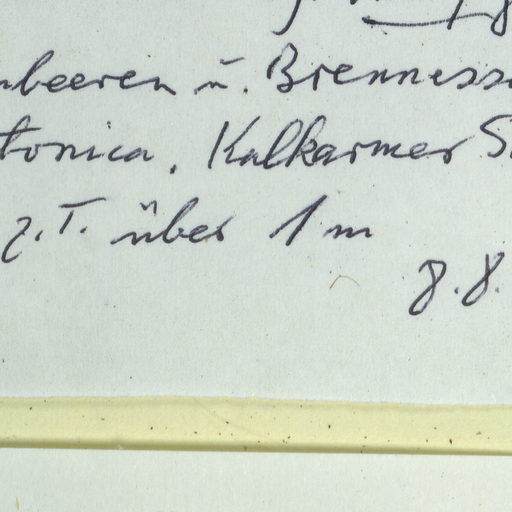 nbeeren u. Brennesse
tonica. Kalkarmer S
z.T. über 1 m
8.8.